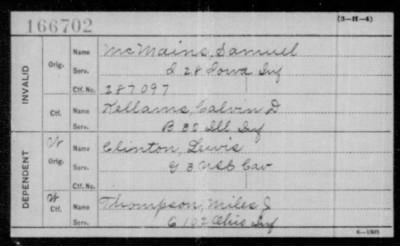 166702
(3-H-4)
INVALID
Orig.
Name McMains, Samuel
Serv. I 28 Iowa Inf
Ctf. No. 287097
Ctf.
Name Kellams, Calvin D
Serv. B 80 Ill Inf
DEPENDENT
W
Orig.
Name Clinton, Lewis
Serv. G 3 USC Cav
Ctf. No.
W
Ctf.
Name Thompson, Miles J
Serv. C 102 Ohio Inf